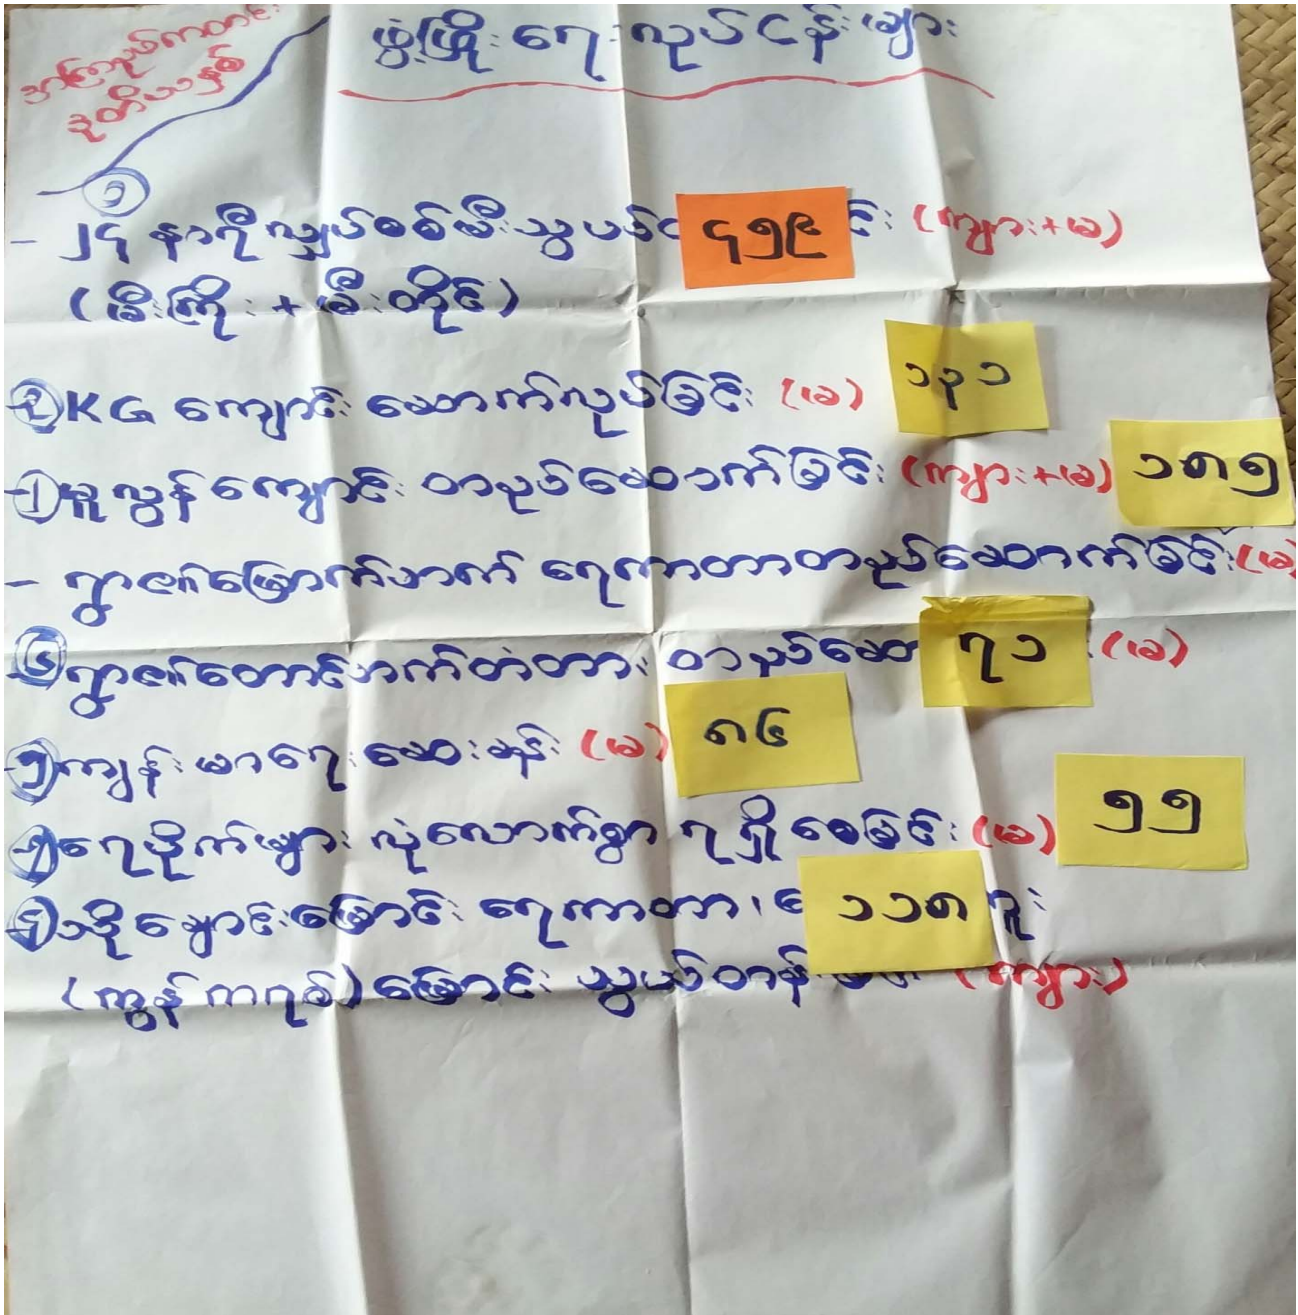 ဖွံ့ဖြိုးရေးလုပ်ငန်းများ
ဒုတိယနှစ်
၁
- ၂၄ နာရီ လျှပ်စစ်မီးသွယ် ၄၅၉ င်း (ကျား+မ)
(မီးကြိုး + မီးတိုင်)
၃ KG ကျောင်း ဆောက်လုပ်ခြင်း (မ) ၁၃၁
မူလွန်ကျောင်း တည်ဆောက်ခြင်း (ကျား+မ) ၁၈၅
- ရွာ၏မြောက်ဘက် ရေကာတာတည်ဆောက်ခြင်း (မ)
၆ ရွာ၏တောင်ဘက်တံတား တည်ဆော ၇၁ (မ)
၅ ကျန်းမာရေးဆေးခန်း (မ) ၈၆
ရေပိုက်များ လုံလောက်စွာ ရရှိစေခြင်း (မ) ၅၅
၄ သို့ချောင်းမြောင်း ရေကာတာ၊ ၁၁၈ ူး
(ကွန်ကရစ်) မြောင်း သွယ်တန်း (ကျား)